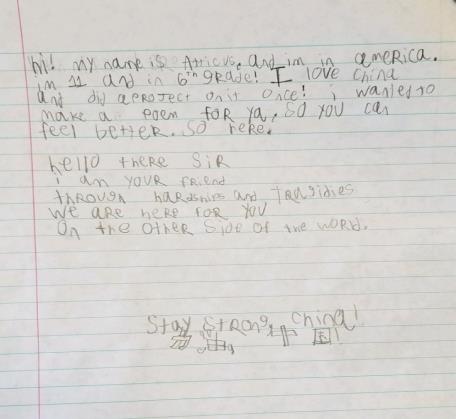 hi! my name is Atticus, and im in america.
Im 11 and in 6th grade! I love china
and did a Project on it once! i wanted to
make a poem for ya, so you can
feel better. so here.
hello there sir
i am your friend
through hardships and tragidies
we are here for you
On the other side of the world.
Stay strong, china!
中国!